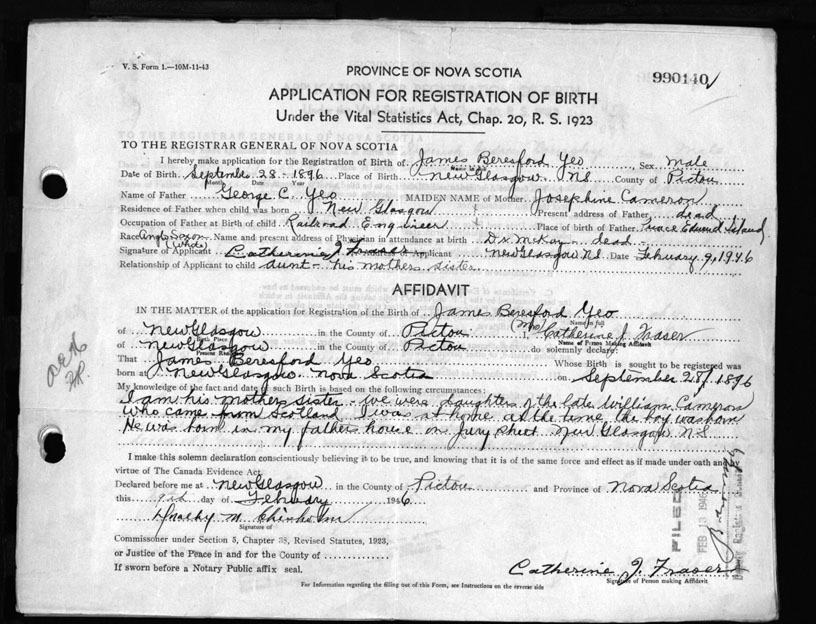 V. S. Form 1.—10M-11-43
990140
PROVINCE OF NOVA SCOTIA
APPLICATION FOR REGISTRATION OF BIRTH
Under the Vital Statistics Act, Chap. 20, R. S. 1923
TO THE REGISTRAR GENERAL OF NOVA SCOTIA
I hereby make application for the Registration of Birth of James Beresford Yeo Sex Male
Name in full
Date of Birth September 28 - 1896 Place of Birth New Glasgow NS County of Pictou
Month Date Year
Name of Father George C. Yeo MAIDEN NAME of Mother Josephine Cameron
Residence of Father when child was born New Glasgow Present address of Father dead
Occupation of Father at Birth of child Railroad Engineer Place of birth of Father Prince Edward Island
Race Anglo Saxon (White) Name and present address of Physician in attendance at birth Dr McKay - dead -
Signature of Applicant Catherine J. Fraser Applicant New Glasgow N.S. Date February 9, 1946
Relationship of Applicant to child aunt - his mothers sister
AFFIDAVIT
IN THE MATTER of the application for Registration of the Birth of James Beresford Yeo
Name in full
of New Glasgow in the County of Pictou (Mrs) Catherine J. Fraser
Birth Place
Name of Person Making Affidavit
of New Glasgow in the County of Pictou do solemnly declare:
Present
That James Beresford Yeo Whose Birth is sought to be registered was
born at New Glasgow Nova Scotia on September 28, 1896
My knowledge of the fact and date of such Birth is based on the following circumstances:
I am his mothers sister - we were daughters of the late William Cameron
who came from Scotland I was at home at the time the boy was born
He was born in my fathers house on Jury Street New Glasgow N.S
I make this solemn declaration conscientiously believing it to be true, and knowing that it is of the same force and effect as if made under oath and by
virtue of The Canada Evidence Act.
Declared before me at New Glasgow in the County of Pictou and Province of Nova Scotia
this 9th day of February 1946
Signature of
Commissioner under Section 5, Chapter 38, Revised Statutes, 1923,
or Justice of the Peace in and for the County of
If sworn before a Notary Public affix seal.
FILED
FEB 13 1946
Catherine J. Fraser
Signature of Person making Affidavit
For Information regarding the filling out of this Form, see Instructions on the reverse side